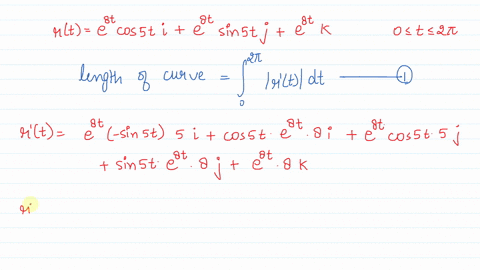 r(t) = e^8t cos5t i + e^8t sin5t j + e^8t k 0 ≤ t ≤ 2π
length of curve = ∫_0^2π |r'(t)| dt —— ①
r'(t) = e^8t (-sin5t) 5 i + cos5t · e^8t · 8 i + e^8t cos5t · 5 j
+ sin5t · e^8t · 8 j + e^8t · 8 k
r